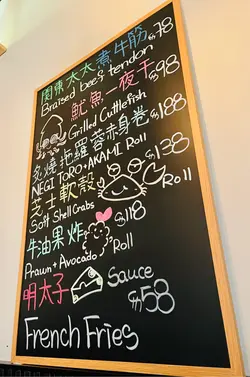 関東太太煮牛筋 $78
Braised beef tendon
魷魚一夜干 $98
Grilled Cuttlefish
炙燒拖羅蓉赤身卷 $188
NEGI TORO + AKAMI Roll
芝士軟殼 $138
Soft Shell Crabs Roll
牛油果炸 $118
Prawn + Avocado Roll
明太子 Sauce $58
French Fries